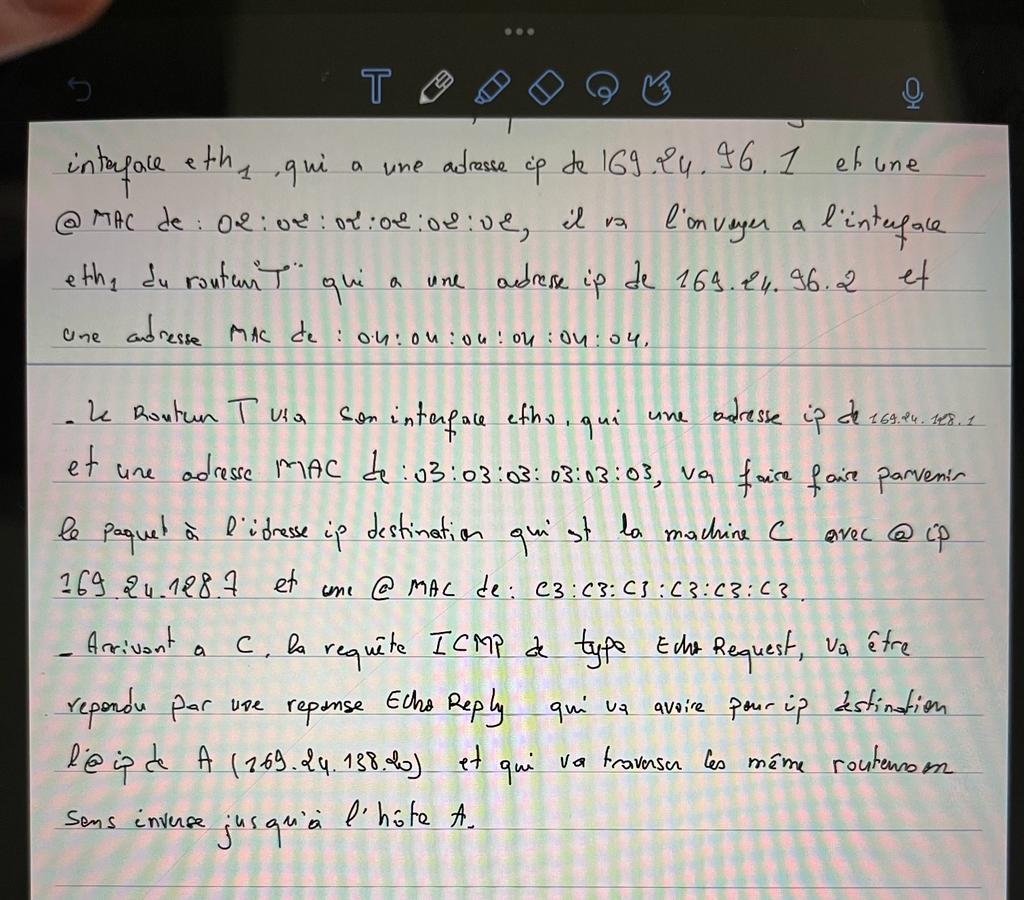 T
interface eth1, qui a une adresse ip de 169.24.96.1 et une
@ MAC de : 02:02:02:02:02:02, il va l'envoyer a l'interface
eth1 du routeur "T" qui a une adresse ip de 169.24.96.2 et
une adresse MAC de : 04:04:04:04:04:04.
- Le Routeur T via son interface eth0, qui une adresse ip de 169.24.128.1
et une adresse MAC de : 03:03:03:03:03:03, va faire faire parvenir
le paquet à l'idresse ip destination qui est la machine C avec @ ip
169.24.128.7 et une @ MAC de : C3:C3:C3:C3:C3:C3.
- Arrivant a C, la requête ICMP de type Echo Request, va être
repondu par une reponse Echo Reply qui va avoire pour ip destination
l'@ ip de A (169.24.138.20) et qui va traverser les même routeurs en
sens inverse jusqu'à l'hôte A.